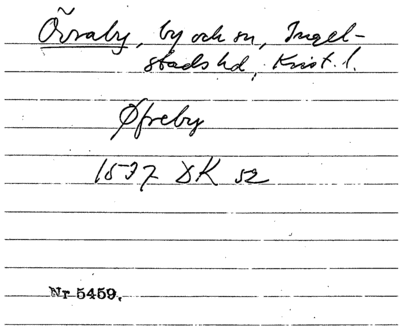 Övraby, by och sn, Ingel-
stads hd, Krist. l.
Øfreby
1537 DK 52
Nr 5459.